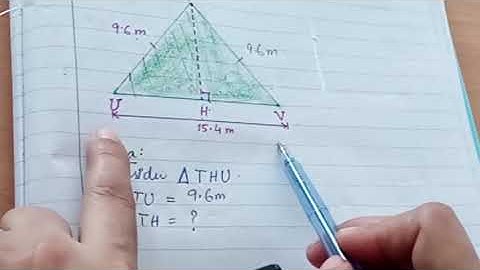 9.6m
9.6m
U
H
V
15.4 m
Δ THU.
TU = 9.6m
TH = ?